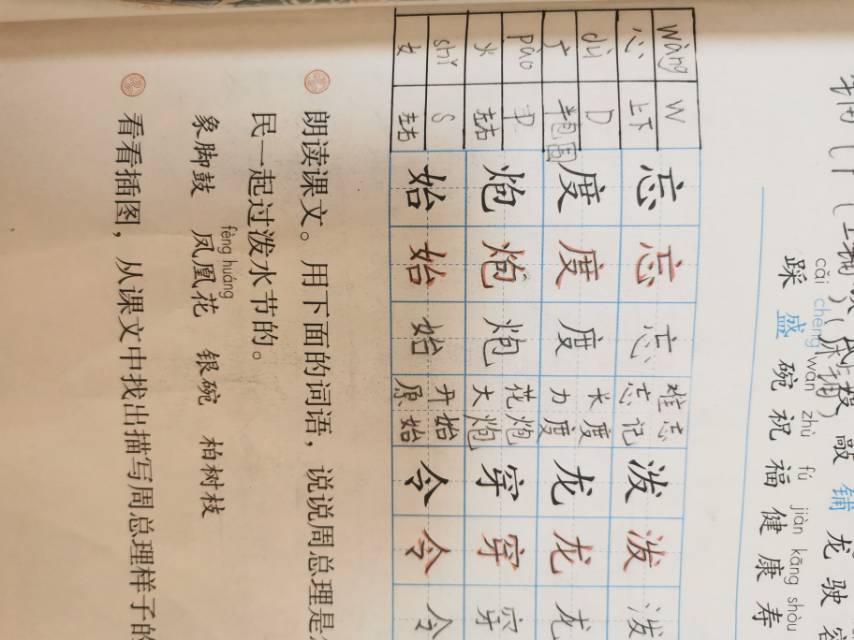 敲 铺 龙 驶
cǎi chéng wǎn zhù fú jiàn kāng shòu
踩 盛 碗 祝 福 健 康 寿
wàng W 忘 忘 忘 难忘 泼 泼 泼
心 上下 忘记
dù D 度 度 度 长度 龙 龙 龙
广 半包围 力度
pào P 炮 炮 炮 花炮 穿 穿 穿
火 左右 大炮
shǐ S 始 始 始 开始 令 令 令
女 左右 原始
朗读课文。用下面的词语，说说周总理是
民一起过泼水节的。
fèng huáng
象脚鼓 凤凰花 银碗 柏树枝
看看插图，从课文中找出描写周总理样子的